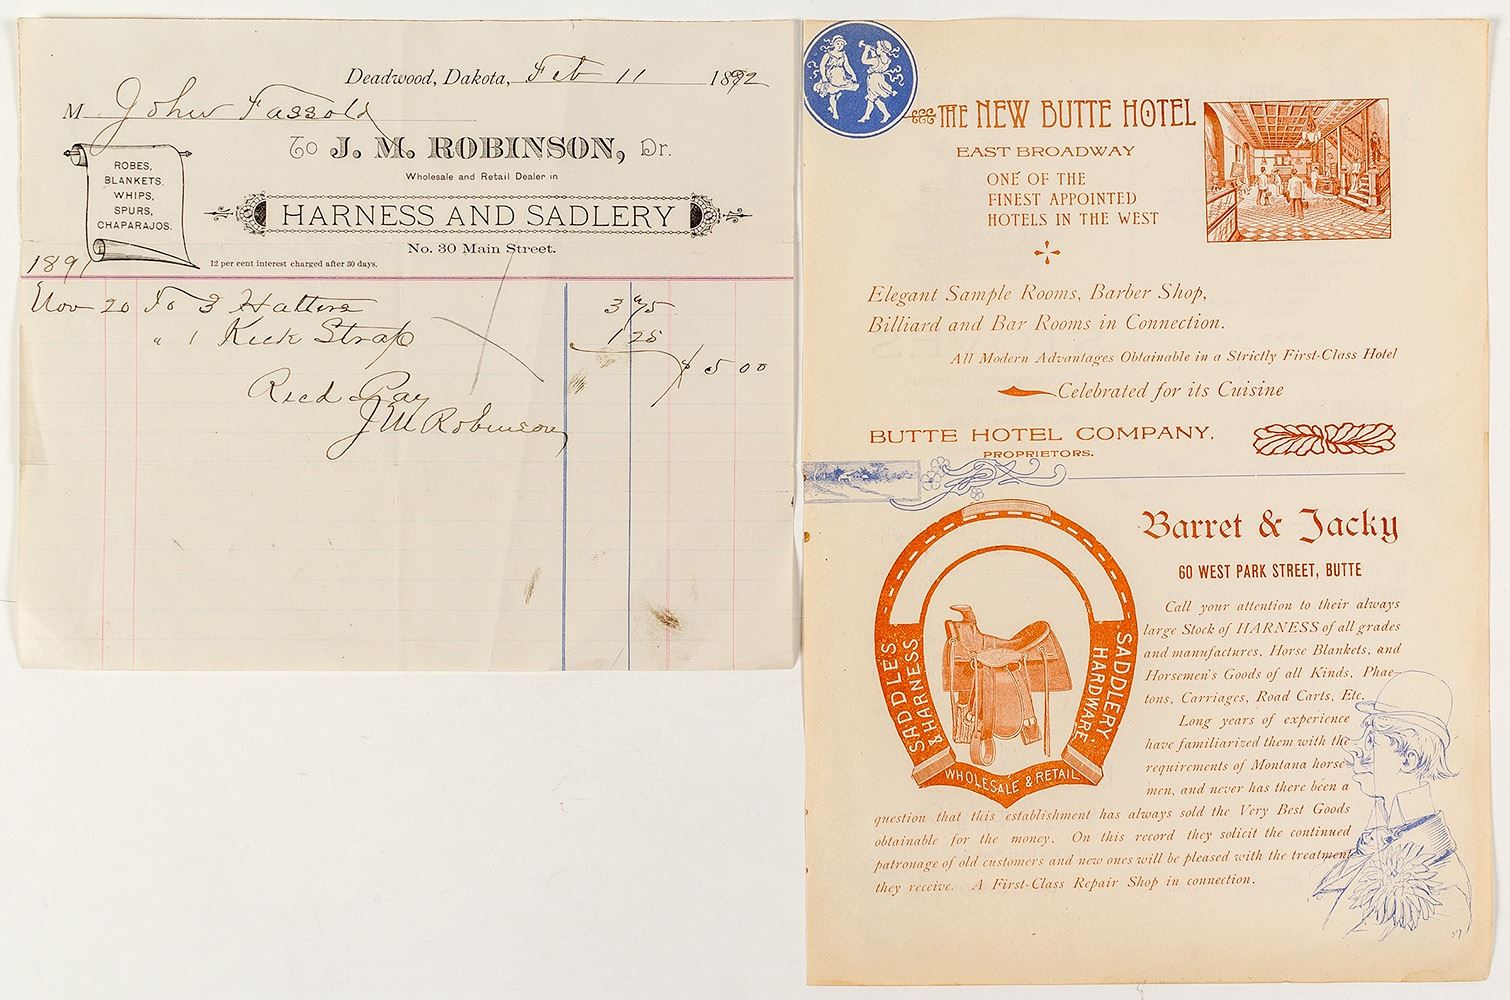 Deadwood, Dakota, Feb 11 1892
M John Fassold
To J. M. ROBINSON, Dr.
Wholesale and Retail Dealer in
HARNESS AND SADLERY
No. 30 Main Street.
ROBES,
BLANKETS,
WHIPS,
SPURS,
CHAPARAJOS.
12 per cent interest charged after 30 days.
1891
Nov 20 To 3 Halters 3 75
" 1 Kick Strap 1 25
$ 5 00
Recd Pay
J M Robinson
THE NEW BUTTE HOTEL
EAST BROADWAY
ONE OF THE
FINEST APPOINTED
HOTELS IN THE WEST
Elegant Sample Rooms, Barber Shop,
Billiard and Bar Rooms in Connection.
All Modern Advantages Obtainable in a Strictly First-Class Hotel
Celebrated for its Cuisine
BUTTE HOTEL COMPANY,
PROPRIETORS.
Barret & Jacky
60 WEST PARK STREET, BUTTE
SADDLES
& HARNESS
SADDLERY
HARDWARE
WHOLESALE & RETAIL
Call your attention to their always
large Stock of HARNESS of all grades
and manufactures, Horse Blankets, and
Horsemen's Goods of all Kinds, Phae-
tons, Carriages, Road Carts, Etc.
Long years of experience
have familiarized them with the
requirements of Montana horse-
men, and never has there been a
question that this establishment has always sold the Very Best Goods
obtainable for the money. On this record they solicit the continued
patronage of old customers and new ones will be pleased with the treatment
they receive. A First-Class Repair Shop in connection.